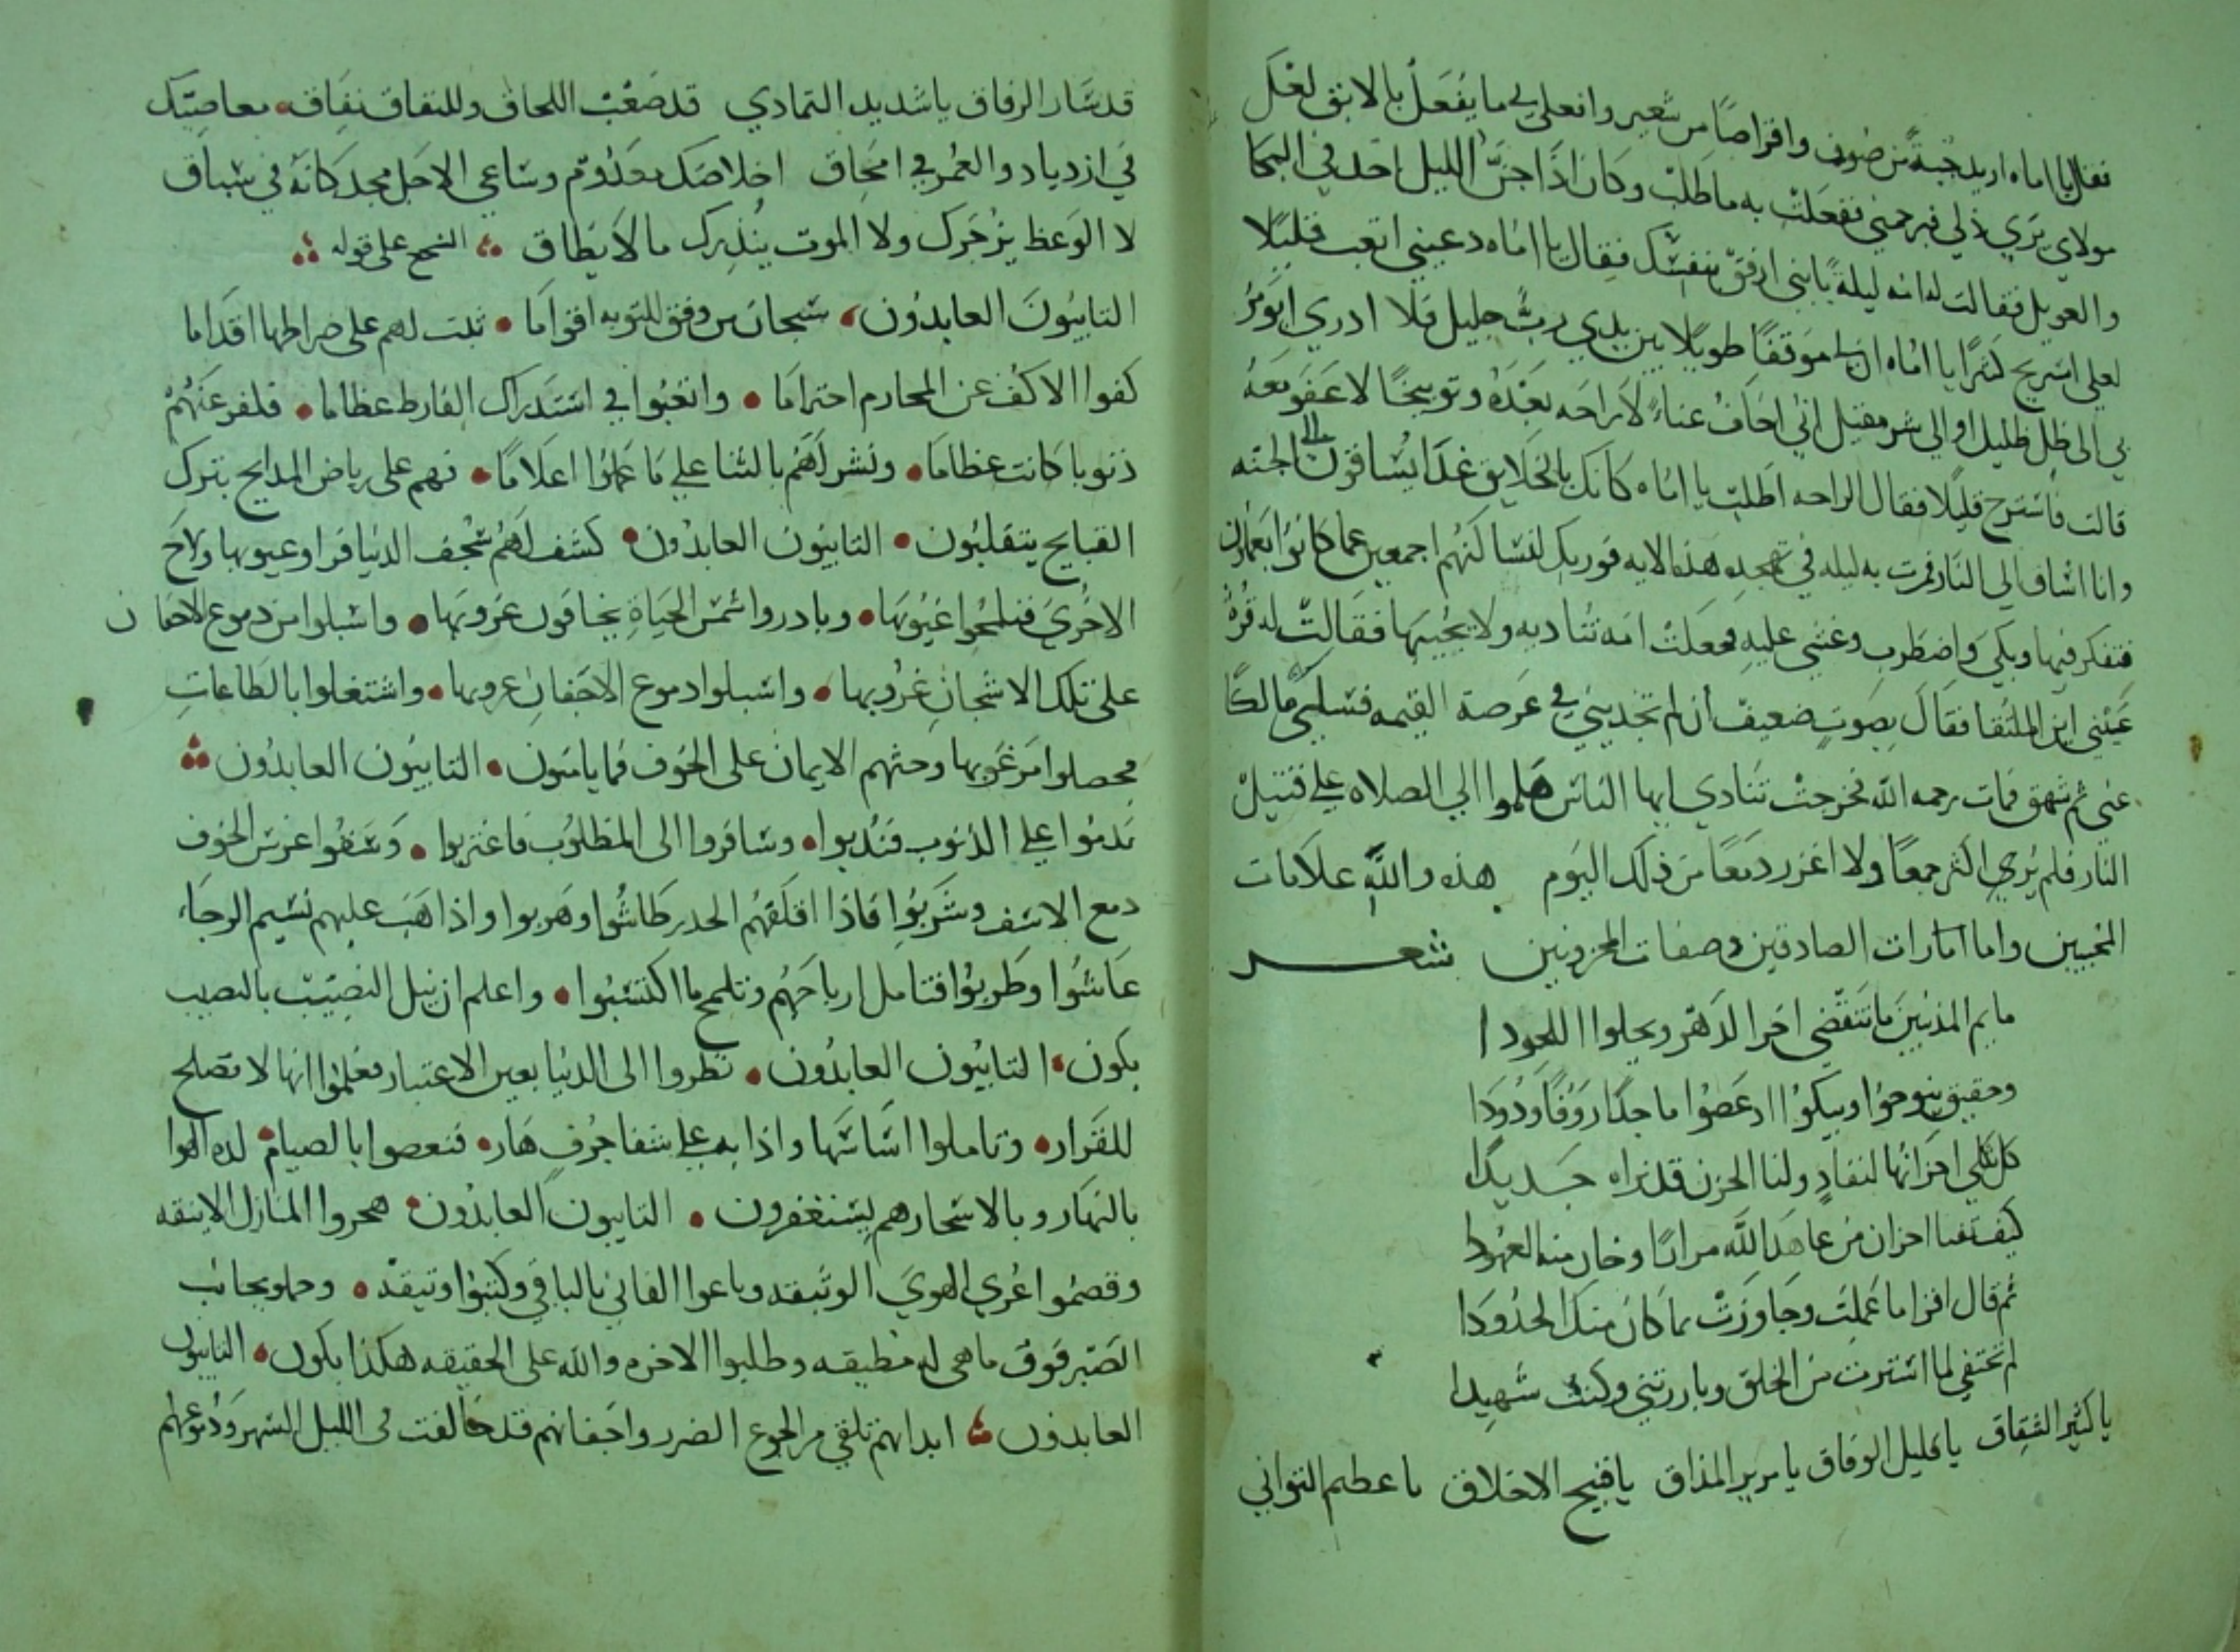 فقال يا اماه اريد جبةً من صوف واقراصاً من شعير وافعلي بي ما يفعل بالابق لعل
مولاي يري ذلي فيرحمني ففعلت به ما طلب وكان اذا جن الليل اخذ في البكا
والعويل فقالت له امه ليلةً يا بني ارفق بنفسك فقال يا اماه دعيني اتعب قليلا
لعلي استريح كثيرًا يا اماه ان لي موقفًا طويلًا بين يدي ربٍ جليل فلا ادري ايومر
بي الى ظل ظليل او الي شر مقيل اني اخاف عناءً لا راحه بعده وتوبيخًا لا عفو معه
قالت فاسترح قليلًا فقال الراحه اطلب يا اماه كانك بالخلايق غدًا يساقون الى الجنه
وانا اساق الي النار فمرت به ليله في تهجده هذه الايه فوربك لنسالنهم اجمعين عما كانوا يعملون
فتفكر فيها وبكي واضطرب وغشي عليه فجعلت امه تناديه ولا يجيبها فقالت له قرة
عيني اين الملتقا فقال بصوتٍ ضعيف ان لم تجديني في عرصة القيمه فسلي مالكًا
عني ثم شهق فمات رحمه الله فخرجت تنادي ايها الناس هلموا الي الصلاه علي قتيل
النار فلم يري اكثر جمعًا ولا اغزر دمعًا من ذلك اليوم هذه والله علامات
المحبين واما امارات الصادقين وصفات المحزونين شعــــر
ماتم المذنبين ما تنقضي اخر الدهر ويحلوا اللحودا
وحقيق ينوحوا ويبكوا اذ عصوا ماجدًا روفًا ودودا
كل ثكلي احزانها لنفادٍ ولنا الحزن قد نراه جديدًا
كيف تفنا احزان من عاهد الله مرارًا وخان منه العهودا
ثم قال اقرا ما عملت وجاوزت بما كان منك الحدودا
لم تختفي لما استترت من الخلق وبارزتني وكنت شهيدا
يا كثير الشقاق يا قليل الوفاق يا مرير المذاق يا قبيح الاخلاق يا عظيم التواني
قد سار الرفاق يا شديد التمادي قد صعب اللحاق وللنفاق نفاق معاصيك
في ازدياد والعمر في امحاق اخلاصك معدوم وساعي الاجل مجد كانه في سباق
لا الوعظ يزجرك ولا الموت ينذرك ما لا يطاق السجع على قوله
التايبون العابدون سبحان من وفق للتوبه اقواما ثبت لهم على صراطها اقداما
كفوا الاكف عن المحارم احتراما واتعبوا في استدراك الفارط عظاما فكفر عنهم
ذنوبا كانت عظاما ونشر لهم بالثنا علي ما عملوا اعلامًا فهم على رياض المدايح بترك
القبايح يتقلبون التايبون العابدون كشف لهم سجف الدنيا فراوا عيوبها ولاح
الاخري فتلمحوا غيوبها وبادروا شمس الحياة يخافون غروبها واسبلوا من دموع الاجفان
على تلك الاشجان غروبها واسبلوا دموع الاجفان غروبها واشتغلوا بالطاعات
فحصلوا مرغوبها وحثهم الايمان على الخوف فما يامنون التايبون العابدون
ندموا علي الذنوب فندبوا وسافروا الى المطلوب فاغتربوا وسقوا غرس الخوف
دمع الاسف وشربوا فاذا اقلقهم الحذر طاشوا وهربوا واذا هب عليهم نسيم الرجاء
عاشوا وطربوا فتامل ارباحهم وتلمح ما اكتسبوا واعلم ان نيل النصيب بالنصب
يكون التايبون العابدون نظروا الى الدنيا بعين الاعتبار فعلموا انها لا تصلح
للقرار وتاملوا اساسها واذا به علي شفا جرف هار فنغصوا بالصيام لذه الهوا
بالنهار وبالاسحار هم يستغفرون التايبون العابدون هجروا المنازل الانيقه
وقصموا عري الهوي الوثيقه وباعوا الفاني بالباقي وكتبوا وثيقه وحملوا نجائب
الصبر فوق ما هي له مطيقه وطلبوا الاخره والله على الحقيقه هكذا يكون التايبون
العابدون ابدانهم تلقي من الجوع الضرر واجفانهم قد حالفت في الليل السهر ودموعهم